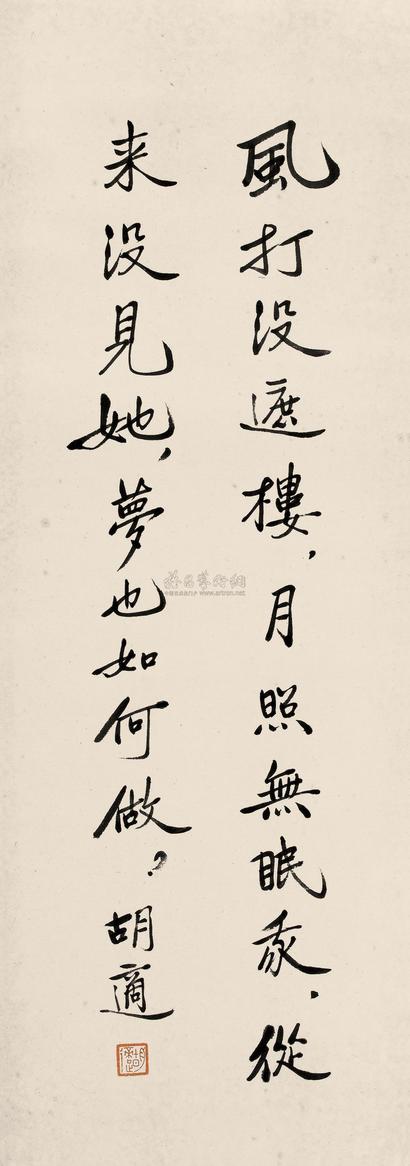 風打没遮樓，月照無眠我，從
来没見她，夢也如何做？胡適
www.artron.net